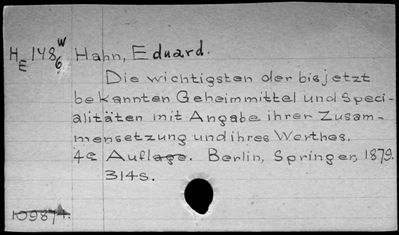 HE 148 W 6 Hahn, Eduard.
Die wichtigsten der bisjetzt
bekannten Geheimmittel und Speci-
alitäten mit Angabe ihrer Zusam-
mensetzung und ihres Werthes.
4e Auflage. Berlin, Springer, 1879.
314s.
109874.